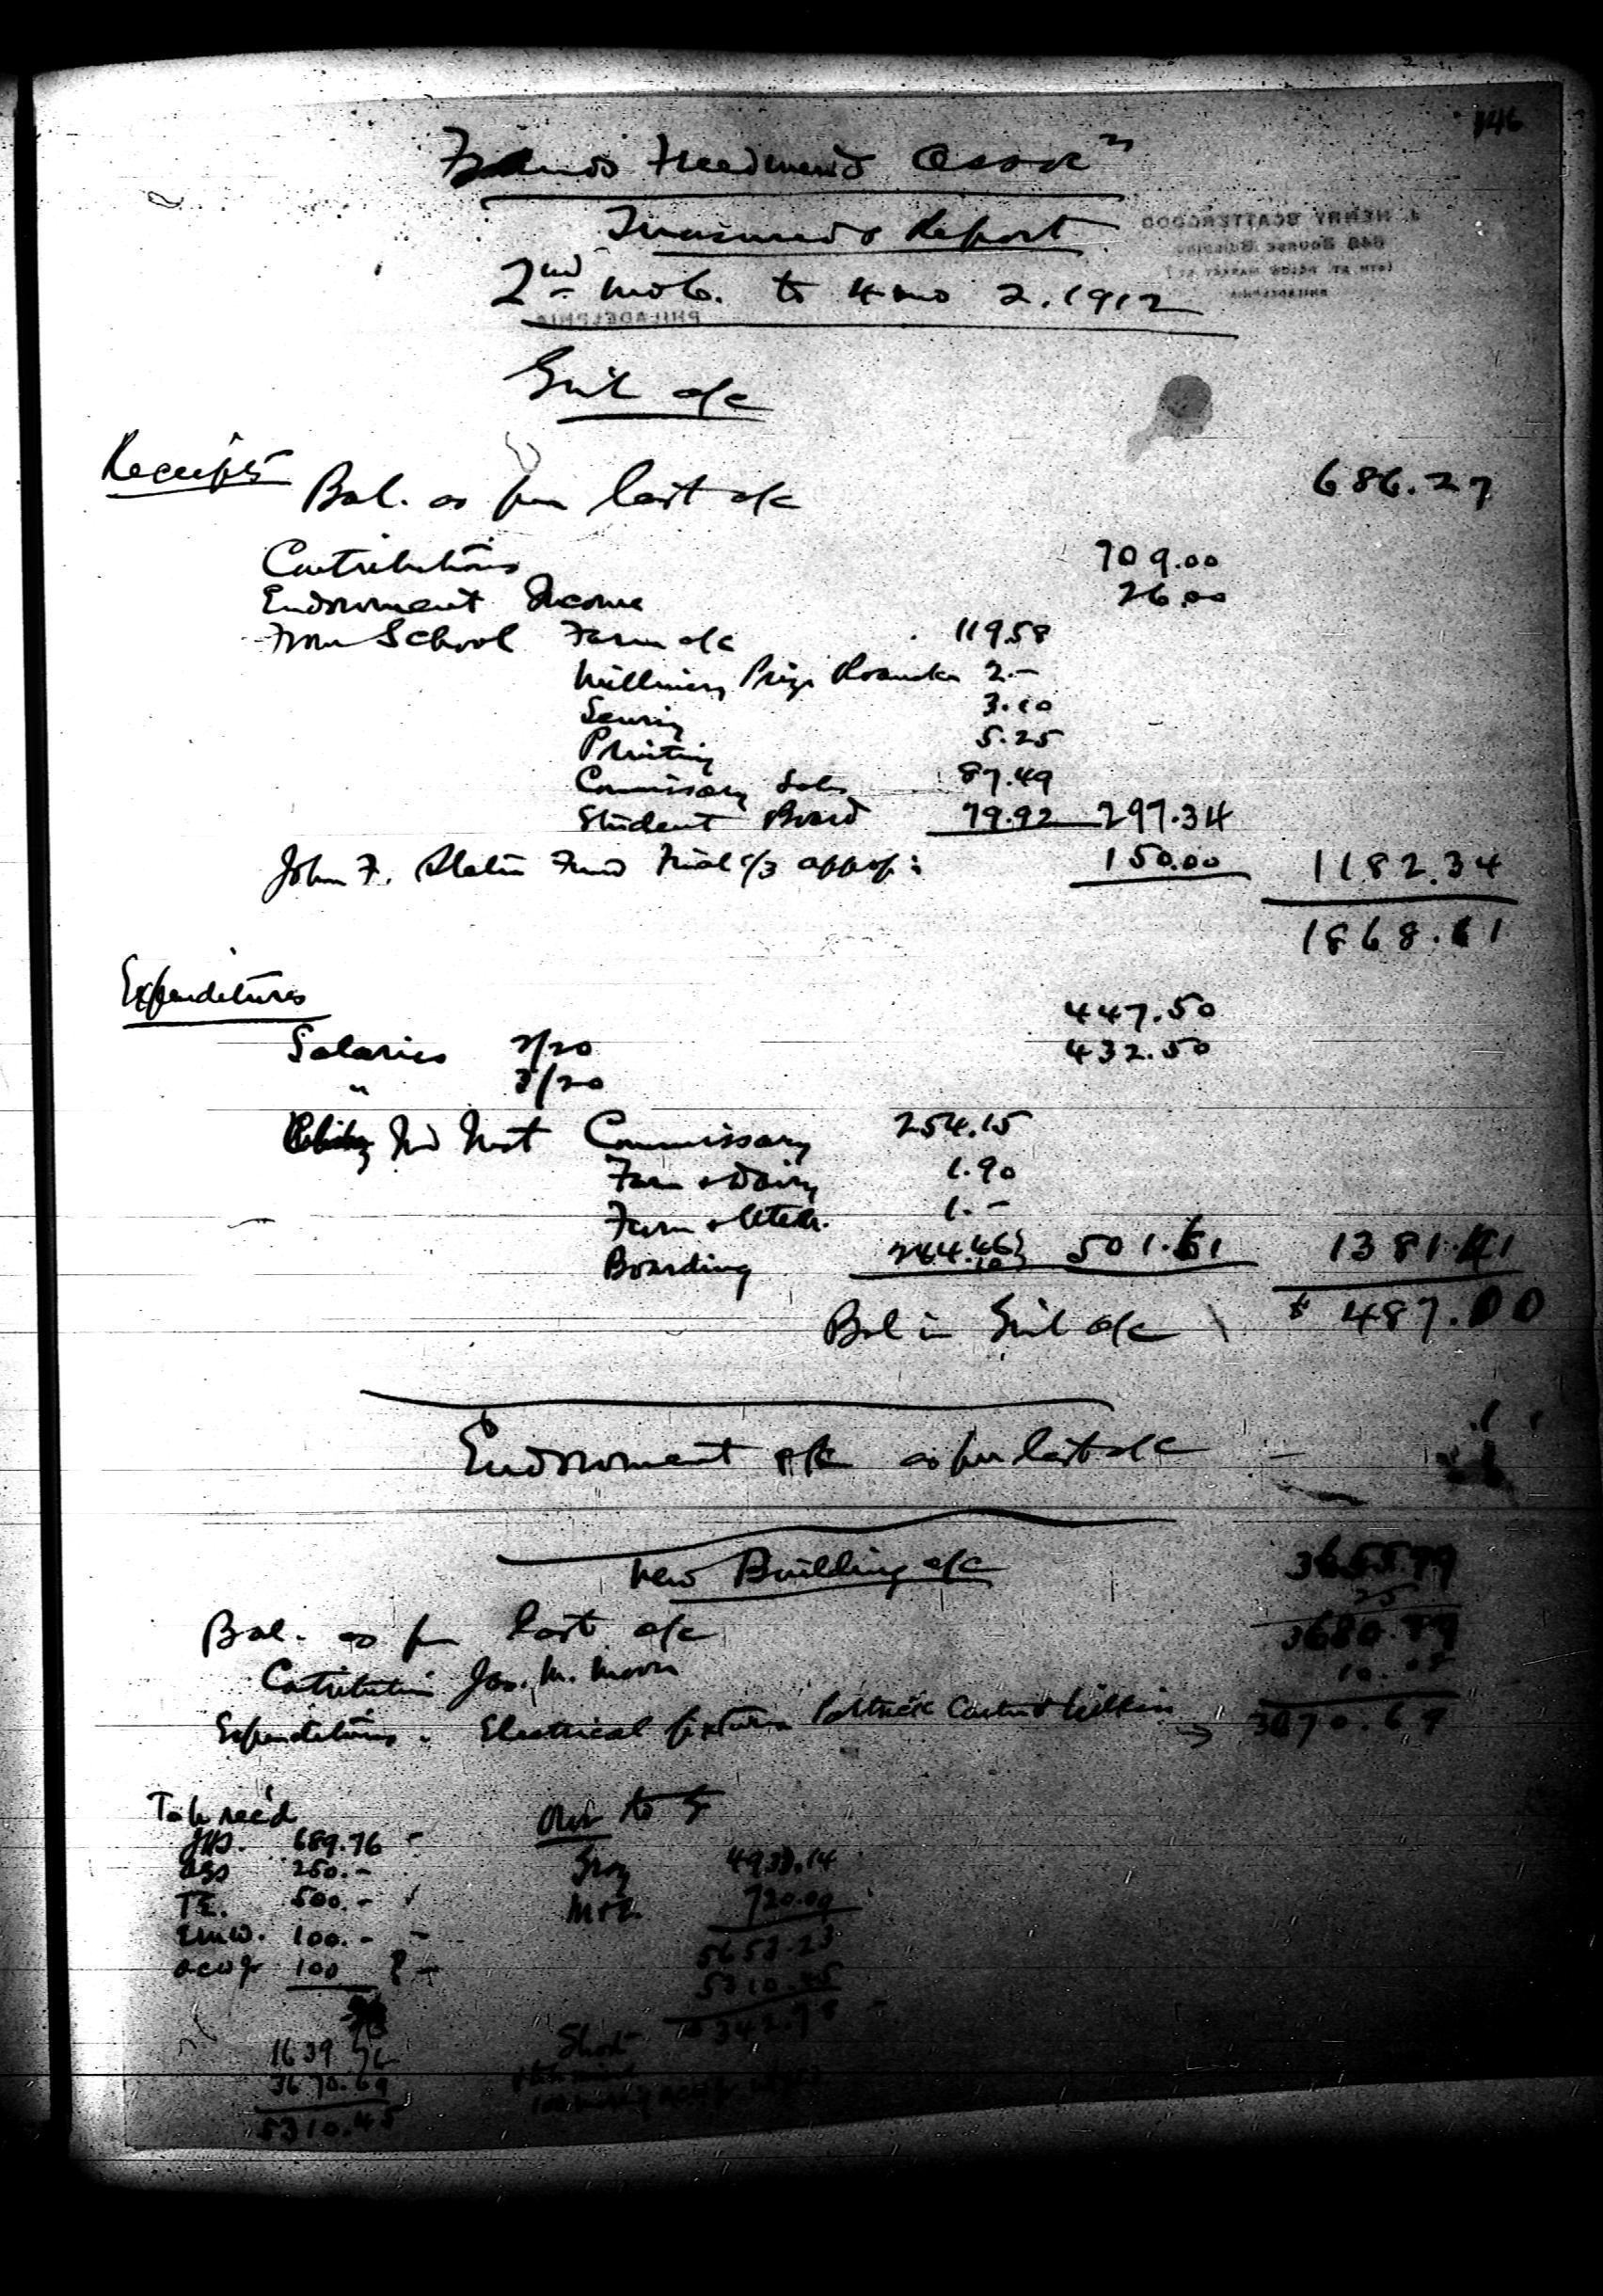 146
Friends Freedmen's Assocn
Treasurer's Report
2nd mo 6. to 4 mo 2. 1912
J. HENRY SCATTERGOOD
648 BOURSE BUILDING
PHILADELPHIA
PHILADELPHIA
Genl a/c
Receipts Bal. as per last a/c 686.27
Contributions 709.00
Endowment Income 26.00
From School Farm a/c 119.58
Millinery Prize Roanoke 2.-
Sewing 3.10
Printing 5.25
Commissary Sales 87.49
Student Board 79.92 297.34
John F. Slater Fund final 1/3 approp: 150.00 1182.34
1868.61
Expenditures
447.50
Salaries 2/20 432.50
" 3/20
Ind Inst Commissary 254.15
Farm & Dairy 1.90
Farm & 1.-
Boarding 244.46 10 501.61 1381.61
Bal in Genl a/c $ 487.00
Endowment a/c as per last a/c
New Building a/c
3655.79
25
Bal. as per last a/c 3680.79
Contribution Jas. M. Moon 10.
Expenditures. Electrical fixtures Carter & Wilkin → 3670.69
To be rec'd
689.76
250.-
T.E. 500.-
EMW. 100.-
100 ?
1639.76
3670.69
5310.45
Due to
4933.14
720.09
5653.23
5310.45
Short 342.78